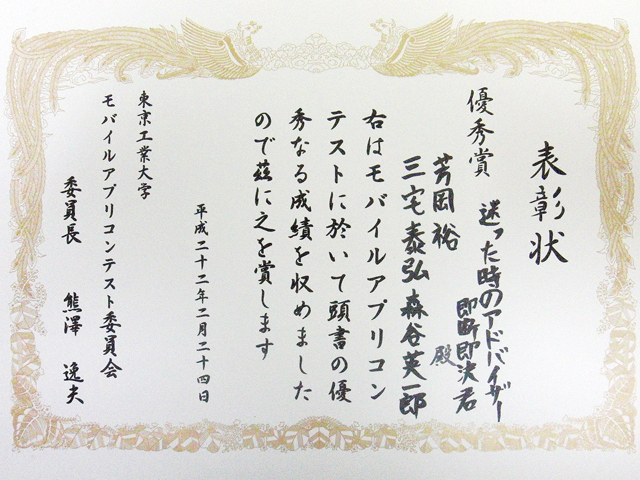 表彰状
優秀賞 迷った時のアドバイザー
即断即決君
芳岡裕
三宅泰弘 森谷英一郎
殿
右はモバイルアプリコン
テストに於いて頭書の優
秀なる成績を収めました
ので茲に之を賞します
平成二十二年二月二十四日
東京工業大学
モバイルアプリコンテスト委員会
委員長 熊澤 逸夫